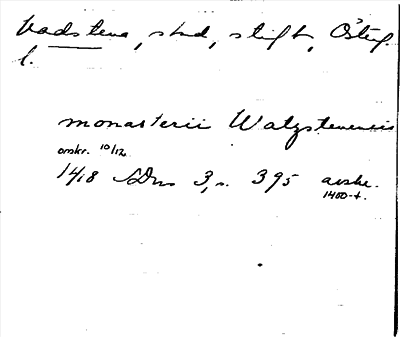 Vadstena, stad, stift, Östergötl.
l.
monasterii Watzstenensis
avskr. 10/12
1418 SDns 3, s. 395 avskr.
1400-t.